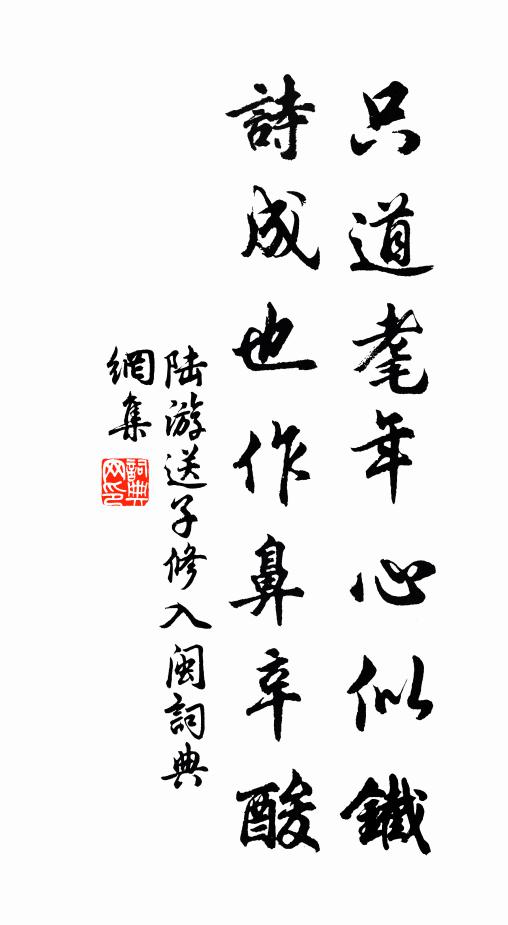 只道耄年心似鐵
詩成也作鼻辛酸
陆游送子修入閩詞典
網集
詞典网印